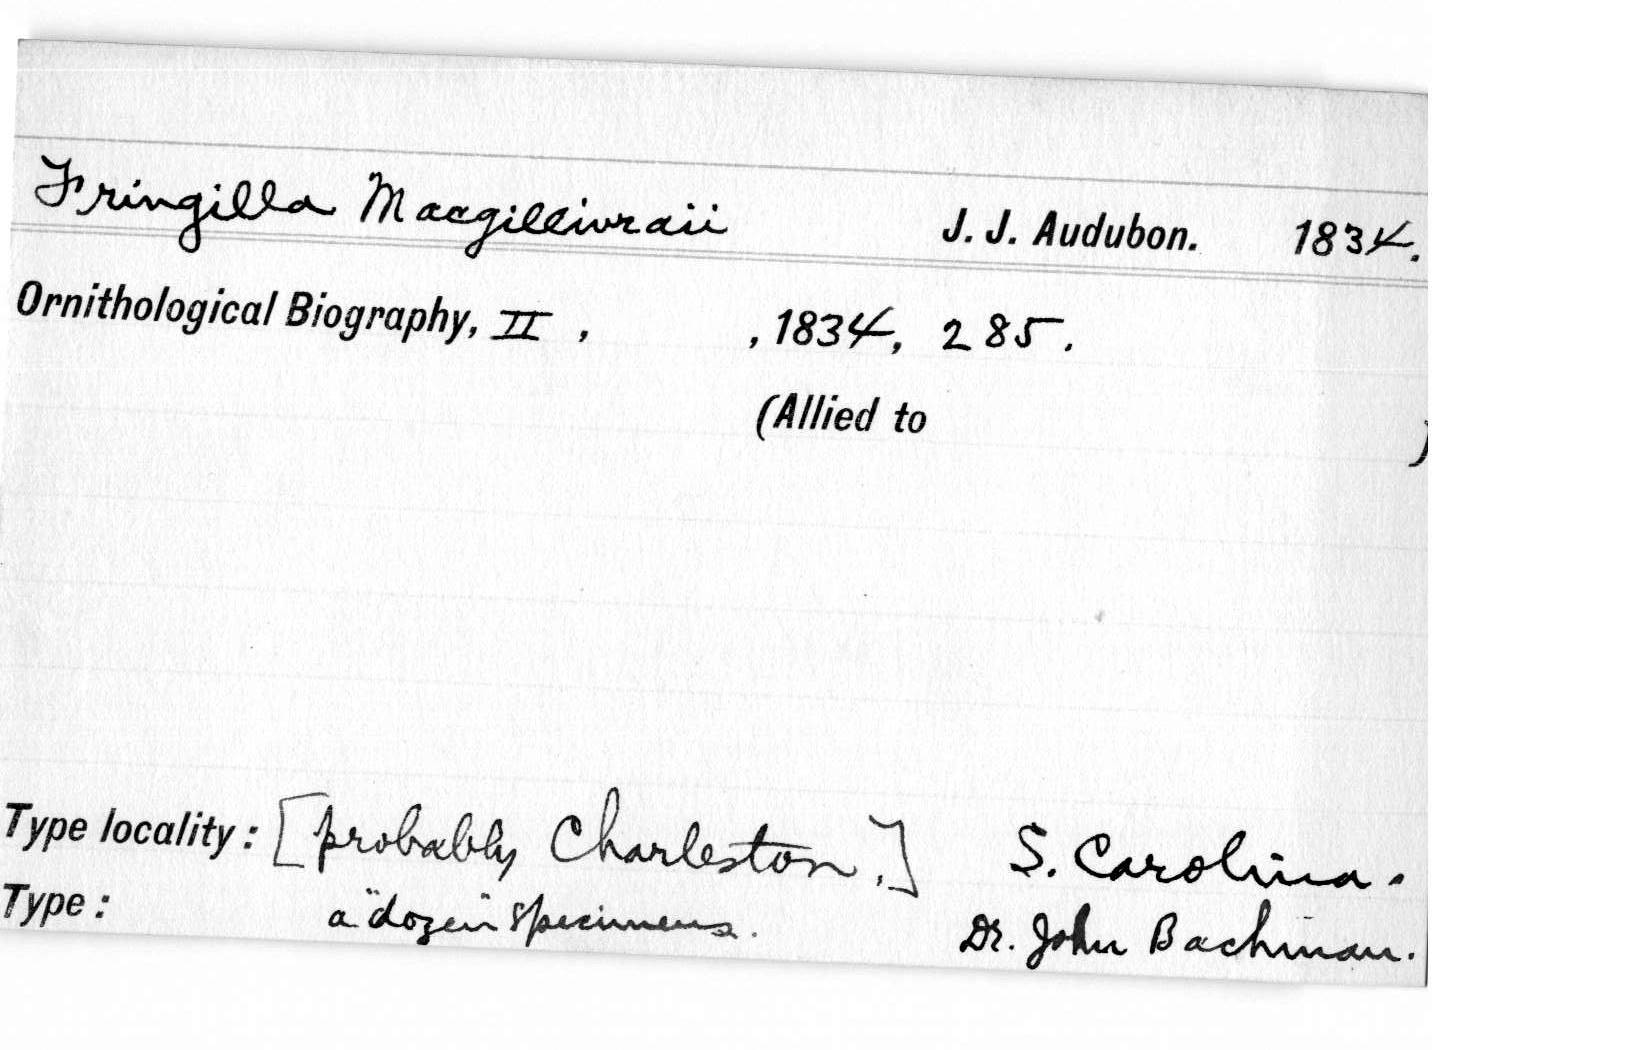 Fringilla Macgillivraii J. J. Audubon. 1834.
Ornithological Biography, II , , 1834, 285.
(Allied to )
Type locality: [probably Charleston,] S. Carolina.
Type: a "dozen" specimens. Dr. John Bachman.